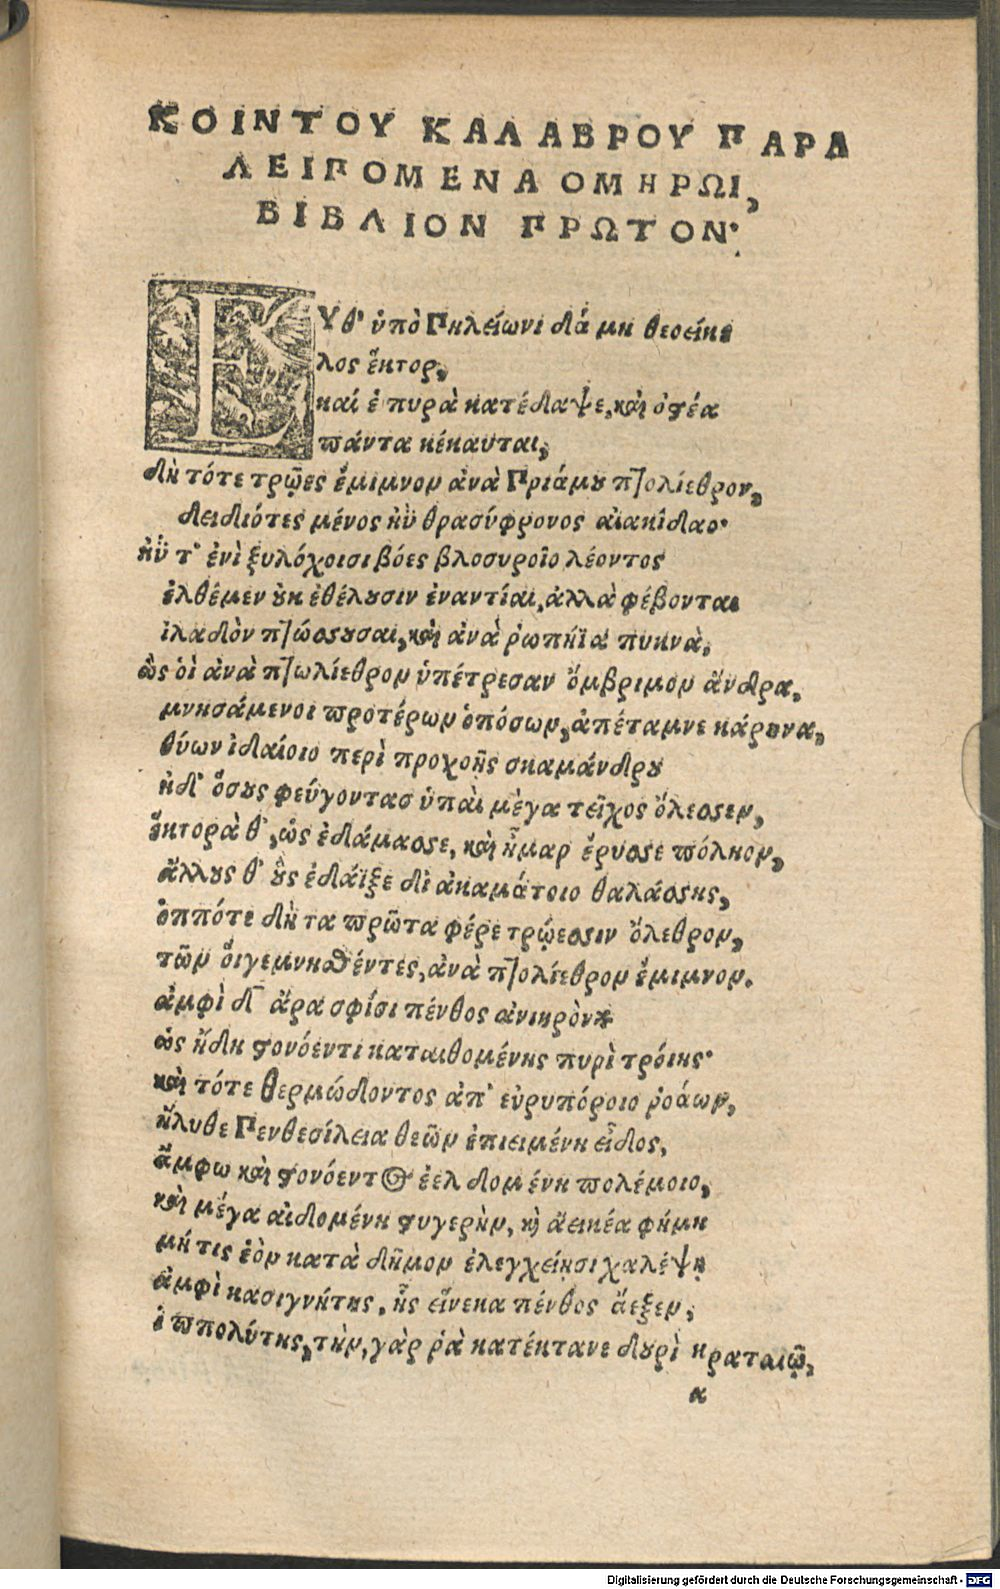 ΚΟΙΝΤΟΥ ΚΑΛΑΒΡΟΥ ΠΑΡΑ
ΛΕΙΠΟΜΕΝΑ ΟΜΗΡΩΙ,
ΒΙΒΛΙΟΝ ΠΡΩΤΟΝ·
ΕΥθ' ὑπὸ Πηλείωνι δάμη θεοείκε
λος ἕκτορ,
καί ἑ πυρὰ κατέδαψε, καὶ ὀστέα
πάντα κέκαυται,
δὴ τότε τρῶες ἔμιμνον ἀνὰ Πριάμου πτολίεθρον,
δειδιότες μένος ἠῢ θρασύφρονος αἰακίδαο·
ἠΰτ' ἐνὶ ξυλόχοισι βόες βλοσυροῖο λέοντος
ἐλθέμεν οὐκ ἐθέλουσιν ἐναντίαι, ἀλλὰ φέβονται
ἰλαδὸν πτώσσουσαι, καὶ ἀνὰ ῥωπήϊα πυκνὰ,
ὣς οἱ ἀνὰ πτωλίεθρον ὑπέτρεσαν ὄμβριμον ἄνδρα,
μνησάμενοι προτέρων ὁπόσων, ἀπέταμνε κάρηνα,
θύων ἰδαίοιο περὶ προχοῇς σκαμάνδρου
ἠδ' ὅσους φεύγοντασ ὑπαὶ μὲγα τεῖχος ὄλεσσεν,
ἕκτορὰ θ', ὡς ἐδάμασσε, καὶ ἦμαρ ἔρυσσε πόληον,
ἄλλους θ' οὓς ἐδάϊξε δὶ ἀκαμάτοιο θαλάσσης,
ὁππότε δὴ τα πρῶτα φέρε τρώεσσιν ὄλεθρον,
τῶν οἵγεμνησθέντες, ἀνὰ πτολίεθρον ἔμιμνον.
ἀμφὶ δ' ἄρα σφίσι πένθος ἀνιηρὸν
ὡς ἤδη στονόεντι καταιθομένης πυρὶ τρόιης·
καὶ τότε θερμώδοντος ἀπ' εὐρυπόροιο ῥοάων,
ἤλυθε Πενθεσίλεια θεῶν ἐπιειμένη εἶδος,
ἄμφω καὶ στονόεντος ἐελδομένη πολέμοιο,
καὶ μέγα αἰδομένη στυγερὴν, καὶ ἀεικέα φήμη
μήτις ἑὸν κατὰ δῆμον ἐλεγχείῃσι χαλέψῃ
ἀμφὶ κασιγνήτης, ἧς εἵνεκα πένθος ἄεξεν,
ἱππολύτης, τὴν, γὰρ ῥὰ κατέκτανε δουρὶ κραταιῷ,
α
Digitalisierung gefördert durch die Deutsche Forschungsgemeinschaft - DFG